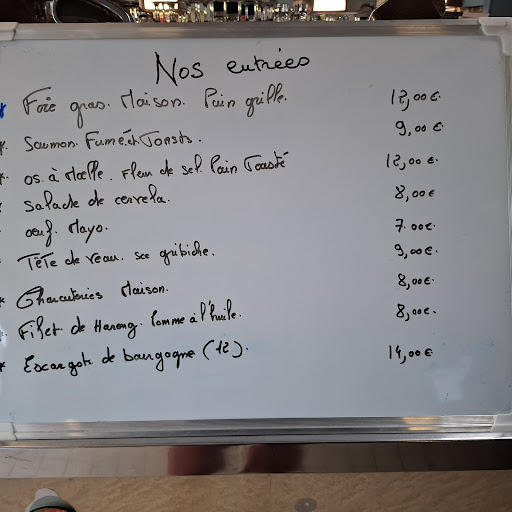 Nos entrées
* Foie gras. Maison. Pain grillé. 12,00 €.
* Saumon. Fumé. et Toasts. 9,00 €.
* os. à Moelle. Fleur de sel. Pain Toasté 12,00 €.
* Salade de cervela. 8,00 €.
* oeuf. Mayo. 7.00€.
* Tête de veau. sce gribiche. 9,00€.
* Charcuteries Maison. 8,00€.
* Filet de Hareng. Pomme à l'huile. 8,00€.
* Escargots de bourgogne (12). 14,00 €